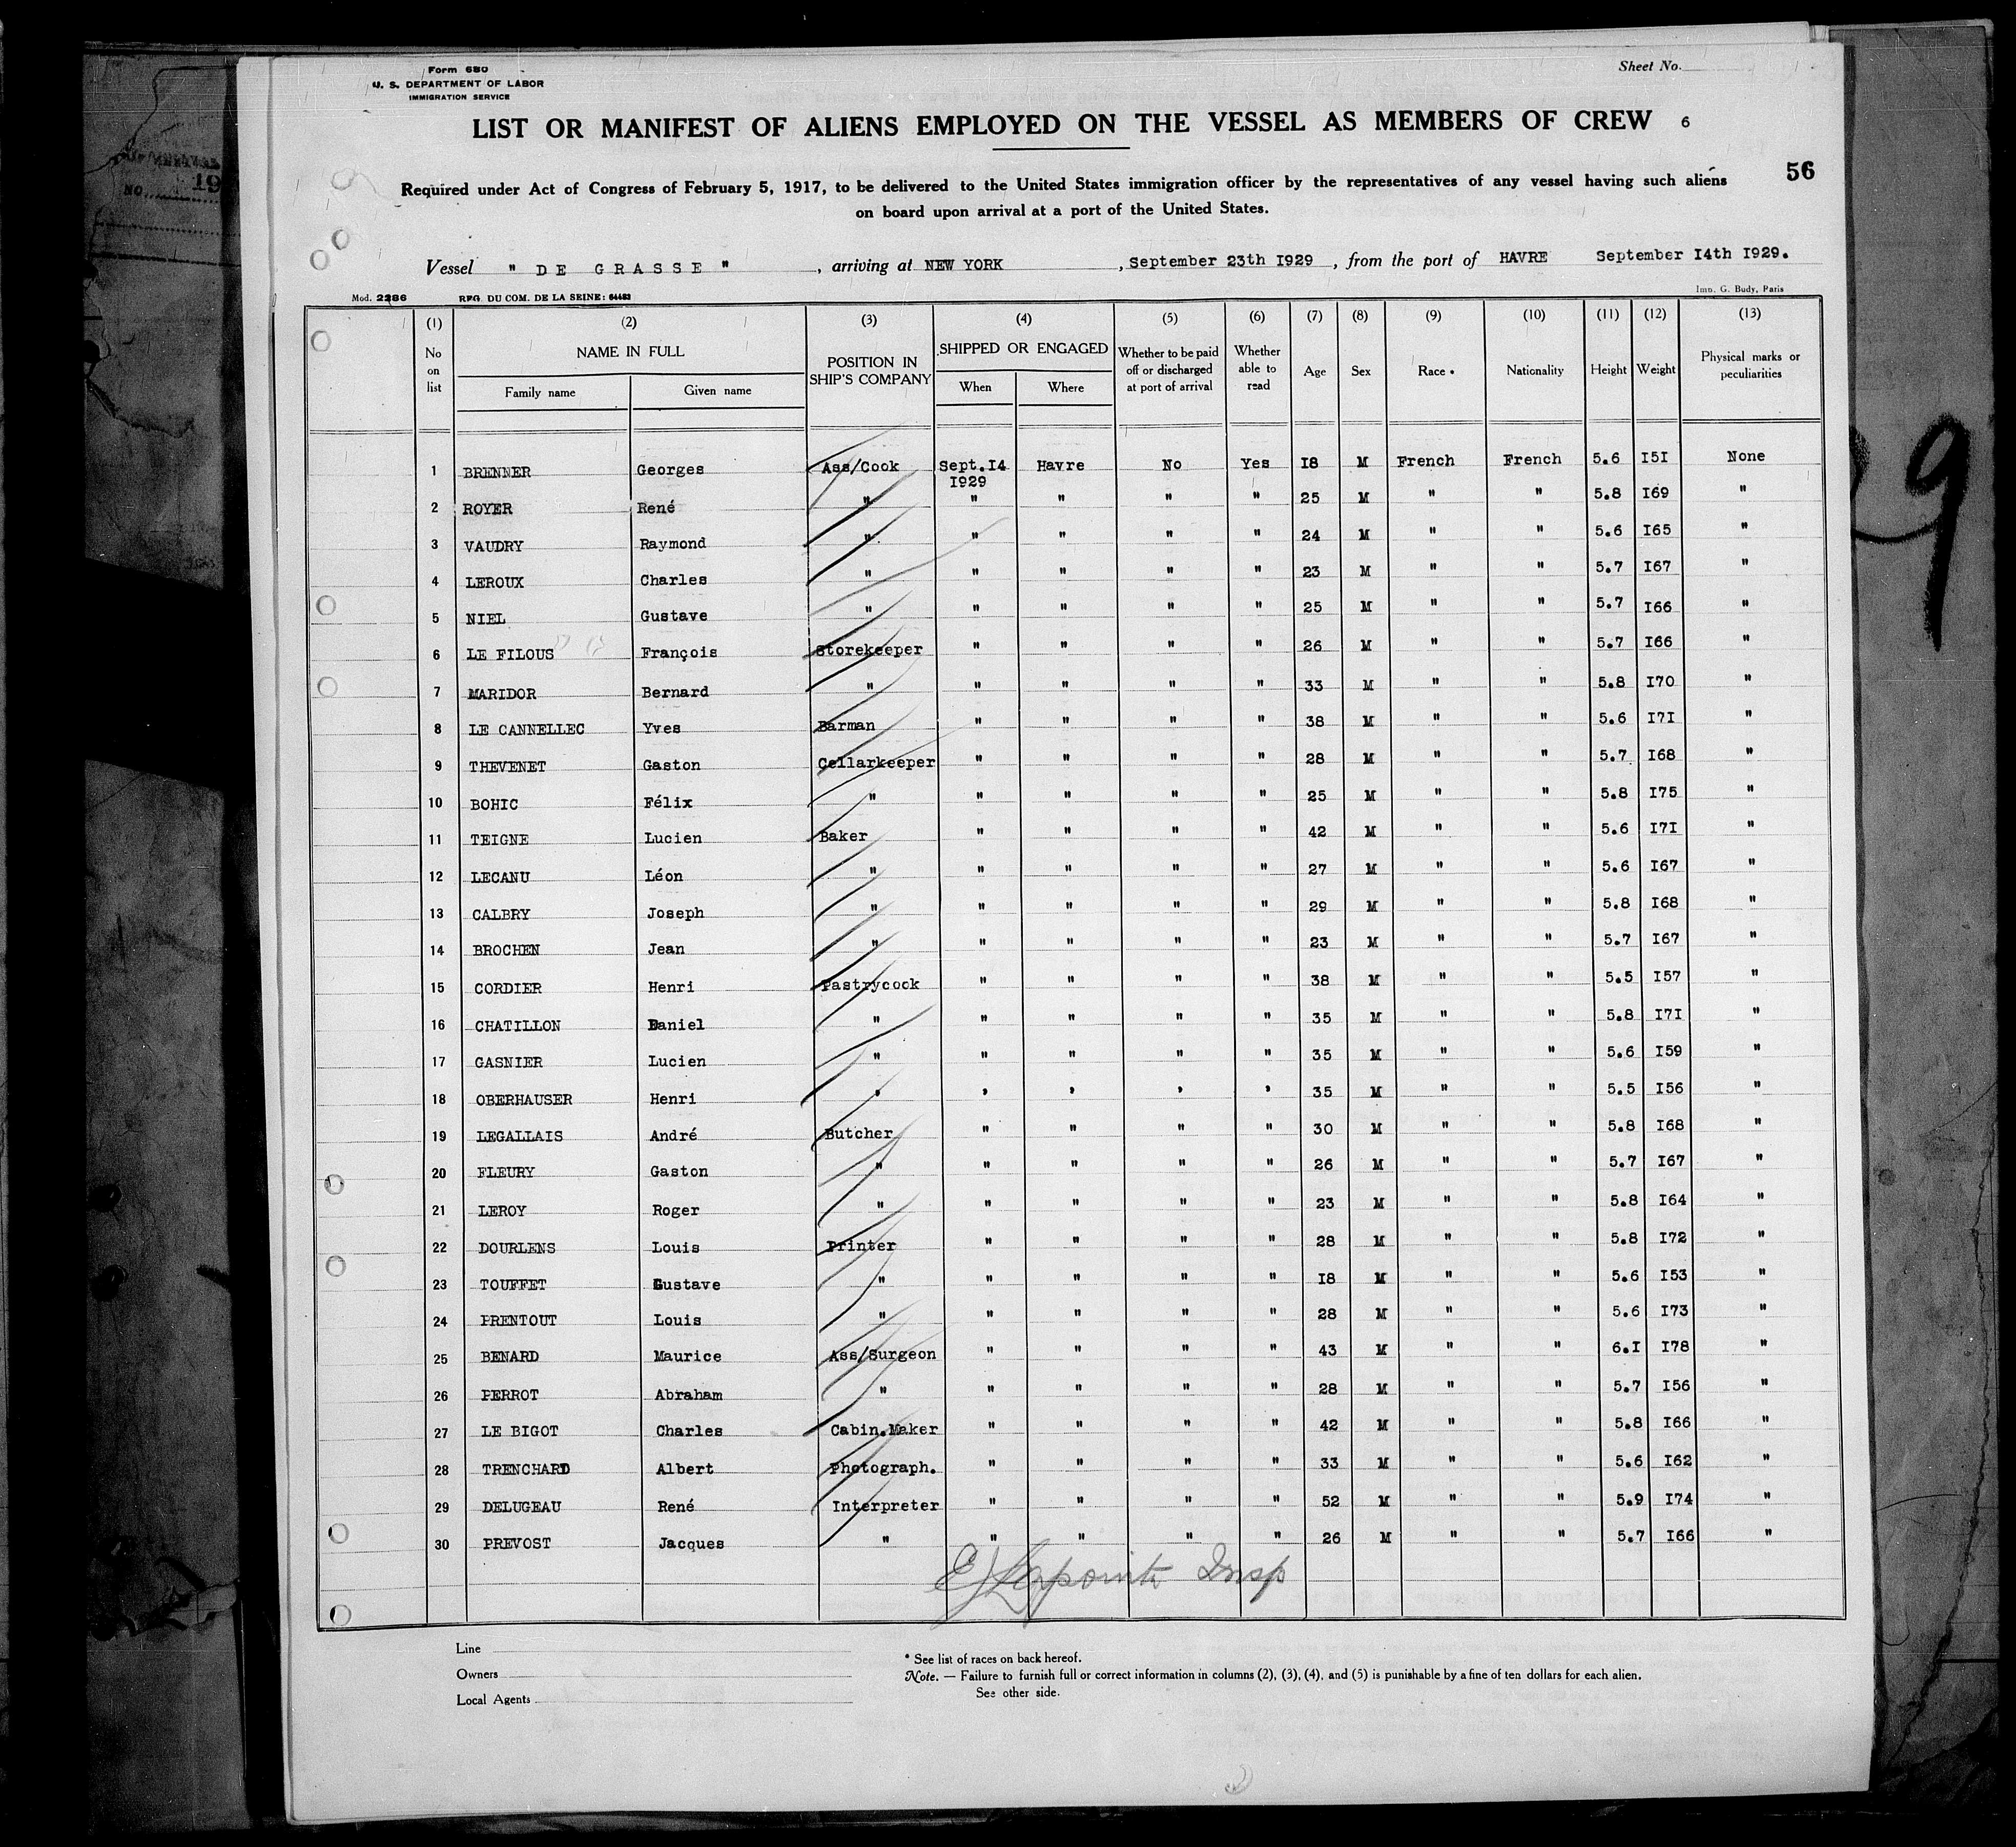 Form 680
U. S. DEPARTMENT OF LABOR
IMMIGRATION SERVICE
Sheet No.
LIST OR MANIFEST OF ALIENS EMPLOYED ON THE VESSEL AS MEMBERS OF CREW 6
56
Required under Act of Congress of February 5, 1917, to be delivered to the United States immigration officer by the representatives of any vessel having such aliens
on board upon arrival at a port of the United States.
Vessel " DE GRASSE ", arriving at NEW YORK, September 23th I929, from the port of HAVRE September I4th I929.
Mod. 2286 REG. DU COM. DE LA SEINE: 64483 Imp. G. Budy, Paris
(1) (2) (3) (4) (5) (6) (7) (8) (9) (10) (11) (12) (13)
No on list NAME IN FULL POSITION IN SHIP'S COMPANY SHIPPED OR ENGAGED Whether to be paid off or discharged at port of arrival Whether able to read Age Sex Race * Nationality Height Weight Physical marks or peculiarities
Family name Given name When Where
1 BRENNER Georges Ass/Cook Sept.I4 I929 Havre No Yes I8 M French French 5.6 I5I None
2 ROYER René " " " " " 25 M " " 5.8 I69 "
3 VAUDRY Raymond " " " " " 24 M " " 5.6 I65 "
4 LEROUX Charles " " " " " 23 M " " 5.7 I67 "
5 NIEL Gustave " " " " " 25 M " " 5.7 I66 "
6 LE FILOUS François Storekeeper " " " " 26 M " " 5.7 I66 "
7 MARIDOR Bernard " " " " " 33 M " " 5.8 I70 "
8 LE CANNELLEC Yves Barman " " " " 38 M " " 5.6 I7I "
9 THEVENET Gaston Cellarkeeper " " " " 28 M " " 5.7 I68 "
10 BOHIC Félix " " " " " 25 M " " 5.8 I75 "
11 TEIGNE Lucien Baker " " " " 42 M " " 5.6 I7I "
12 LECANU Léon " " " " " 27 M " " 5.6 I67 "
13 CALBRY Joseph " " " " " 29 M " " 5.8 I68 "
14 BROCHEN Jean " " " " " 23 M " " 5.7 I67 "
15 CORDIER Henri Pastrycook " " " " 38 M " " 5.5 I57 "
16 CHATILLON Daniel " " " " " 35 M " " 5.8 I7I "
17 GASNIER Lucien " " " " " 35 M " " 5.6 I59 "
18 OBERHAUSER Henri ' ' ' ' ' 35 M " " 5.5 I56 "
19 LEGALLAIS André Butcher " " " " 30 M " " 5.8 I68 "
20 FLEURY Gaston " " " " " 26 M " " 5.7 I67 "
21 LEROY Roger " " " " " 23 M " " 5.8 I64 "
22 DOURLENS Louis Printer " " " " 28 M " " 5.8 I72 "
23 TOUFFET Gustave " " " " " I8 M " " 5.6 I53 "
24 PRENTOUT Louis " " " " " 28 M " " 5.6 I73 "
25 BENARD Maurice Ass/Surgeon " " " " 43 M " " 6.I I78 "
26 PERROT Abraham " " " " " 28 M " " 5.7 I56 "
27 LE BIGOT Charles Cabin.Maker " " " " 42 M " " 5.8 I66 "
28 TRENCHARD Albert Photograph. " " " " 33 M " " 5.6 I62 "
29 DELUGEAU René Interpreter " " " " 52 M " " 5.9 I74 "
30 PREVOST Jacques " " " " " 26 M " " 5.7 I66 "
E J Lapointe Insp
Line
Owners
Local Agents
* See list of races on back hereof.
Note. — Failure to furnish full or correct information in columns (2), (3), (4), and (5) is punishable by a fine of ten dollars for each alien.
See other side.
NO. 19
9